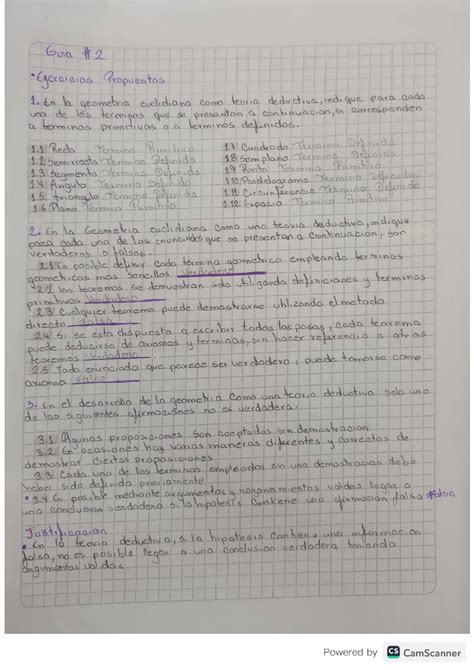 Guia #2
• Ejercicios Propuestos
1. En la geometria euclidiana como teoria deductiva, indique para cada
uno de los terminos que se presentan a continuacion, si corresponden
a terminos primitivos o a terminos definidos.
1.1 Recta Termino Primitivo
1.2 Semirrecta Termino Definido
1.3 Segmento Termino Definido
1.4 Angulo Termino Definido
1.5 Triangulo Termino Definido
1.6 Plano Termino Primitivo
1.7 Cuadrado Termino Definido
1.8 Semiplano Termino Definido
1.9 Punto Termino Primitivo
1.10 Paralelogramo Termino Definido
1.11 Circunferencia Termino Definido
1.12 Espacio Termino Primitivo
2. En la Geometria euclidiana como una teoria deductiva, indique
para cada uno de los enunciados que se presentan a continuacion, son
verdaderos o falsos.
2.1 Es posible definir cada termino geometrico empleando terminos
geometricos mas sencillos Verdadero
2.2 los teoremas se demuestran solo utilizando definiciones y terminos
primitivos Verdadero
2.3 Cualquier teorema puede demostrarse utilizando el metodo
directo Falso
2.4 si se esta dispuesto a escribir todos los pasos, cada teorema
puede deducirse de axiomas y terminos, sin hacer referencia a otros
teoremas Verdadero
2.5 Todo enunciado que parece ser verdadero, puede tomarse como
axioma Falso
3. En el desarrollo de la geometria como una teoria deductiva solo una
de las siguientes afirmaciones no es verdadera:
3.1 Algunas proposiciones son aceptadas sin demostracion
3.2 En ocasiones hay varias maneras diferentes y correctas de
demostrar ciertas proposiciones
3.3 Cada uno de los terminos empleados en una demostracion debe
haber sido definido previamente
• 3.4 Es posible mediante argumentos y razonamientos validos llegar a
una conclusion verdadera si la hipotesis contiene una afirmacion falsa #Falsa
Justificacion
• En la teoria deductiva, si la hipotesis contiene una informacion
falsa, no es posible llegar a una conclusion verdadera teniendo
argumentos validos.
Powered by CS CamScanner